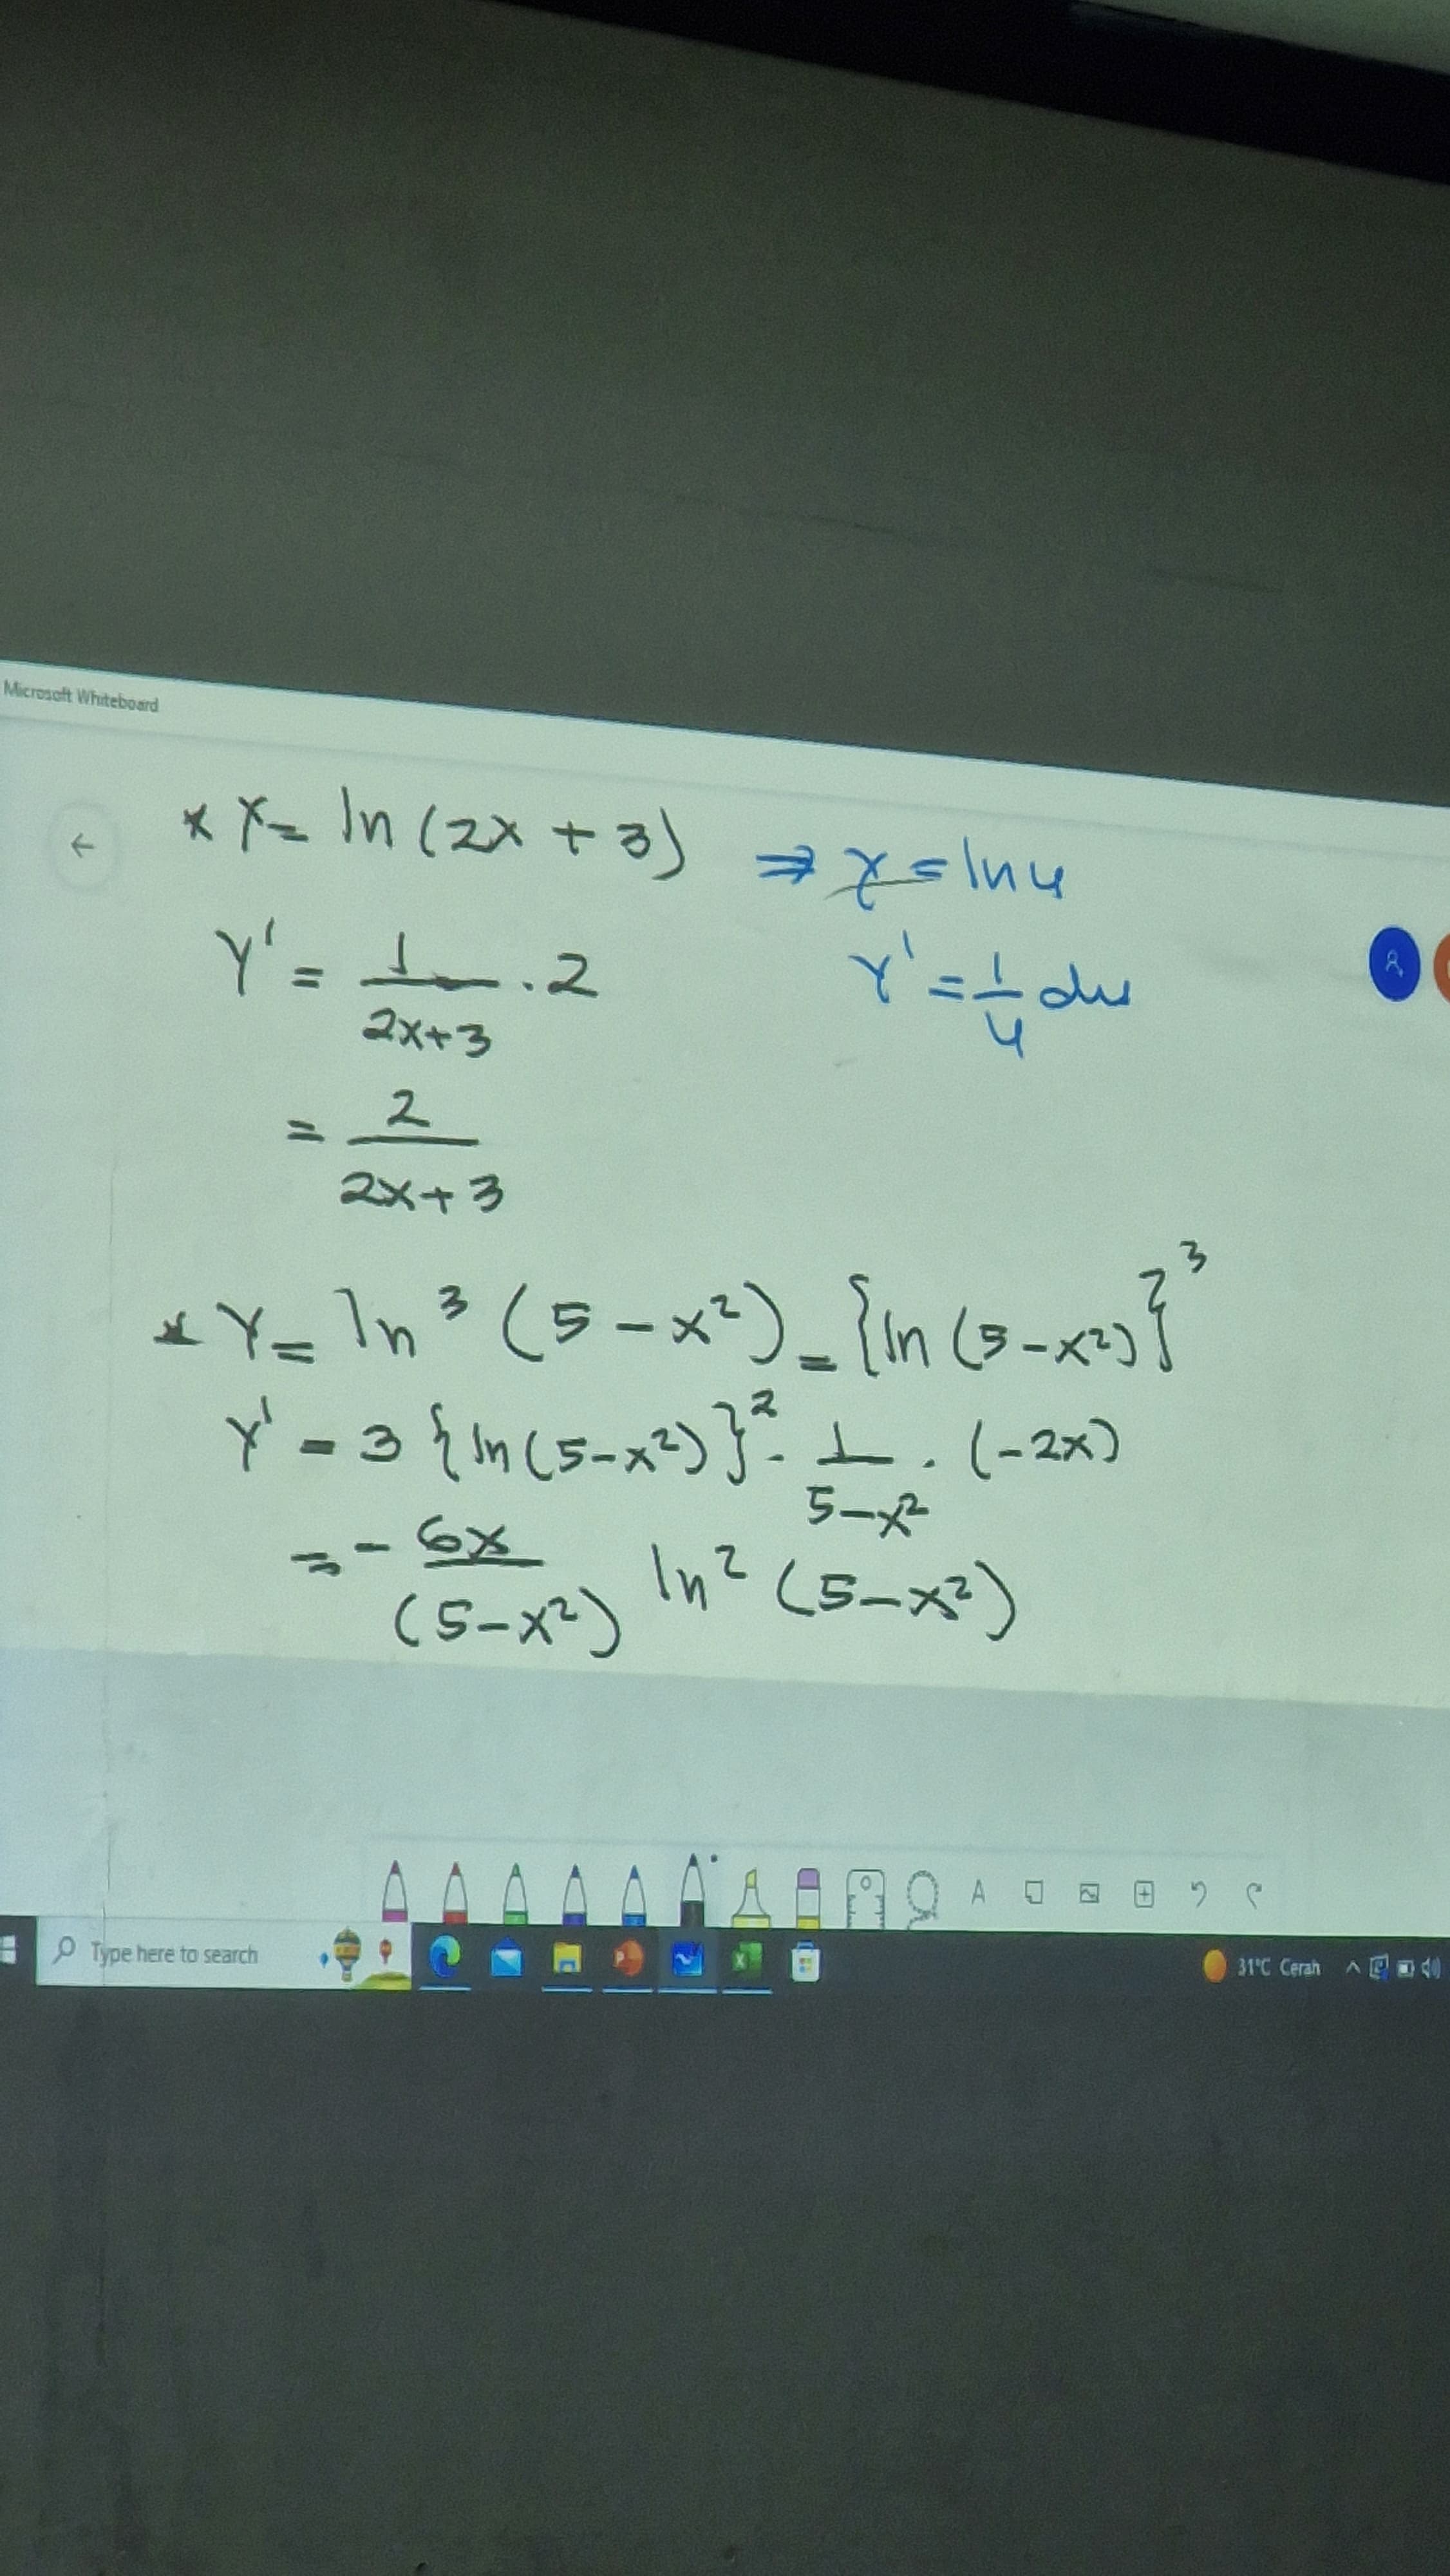 Microsoft Whiteboard
* Y = ln (2x + 3) ⇒ y = ln u
Y' = 1/(2x+3) . 2 Y' = 1/u du
= 2/(2x+3)
* Y = ln³ (5 - x²) = {ln (5-x²)}³
Y' = 3 {ln(5-x²)}² . 1/(5-x²) . (-2x)
= - 6x/(5-x²) ln² (5-x²)
A
Type here to search
31°C Cerah